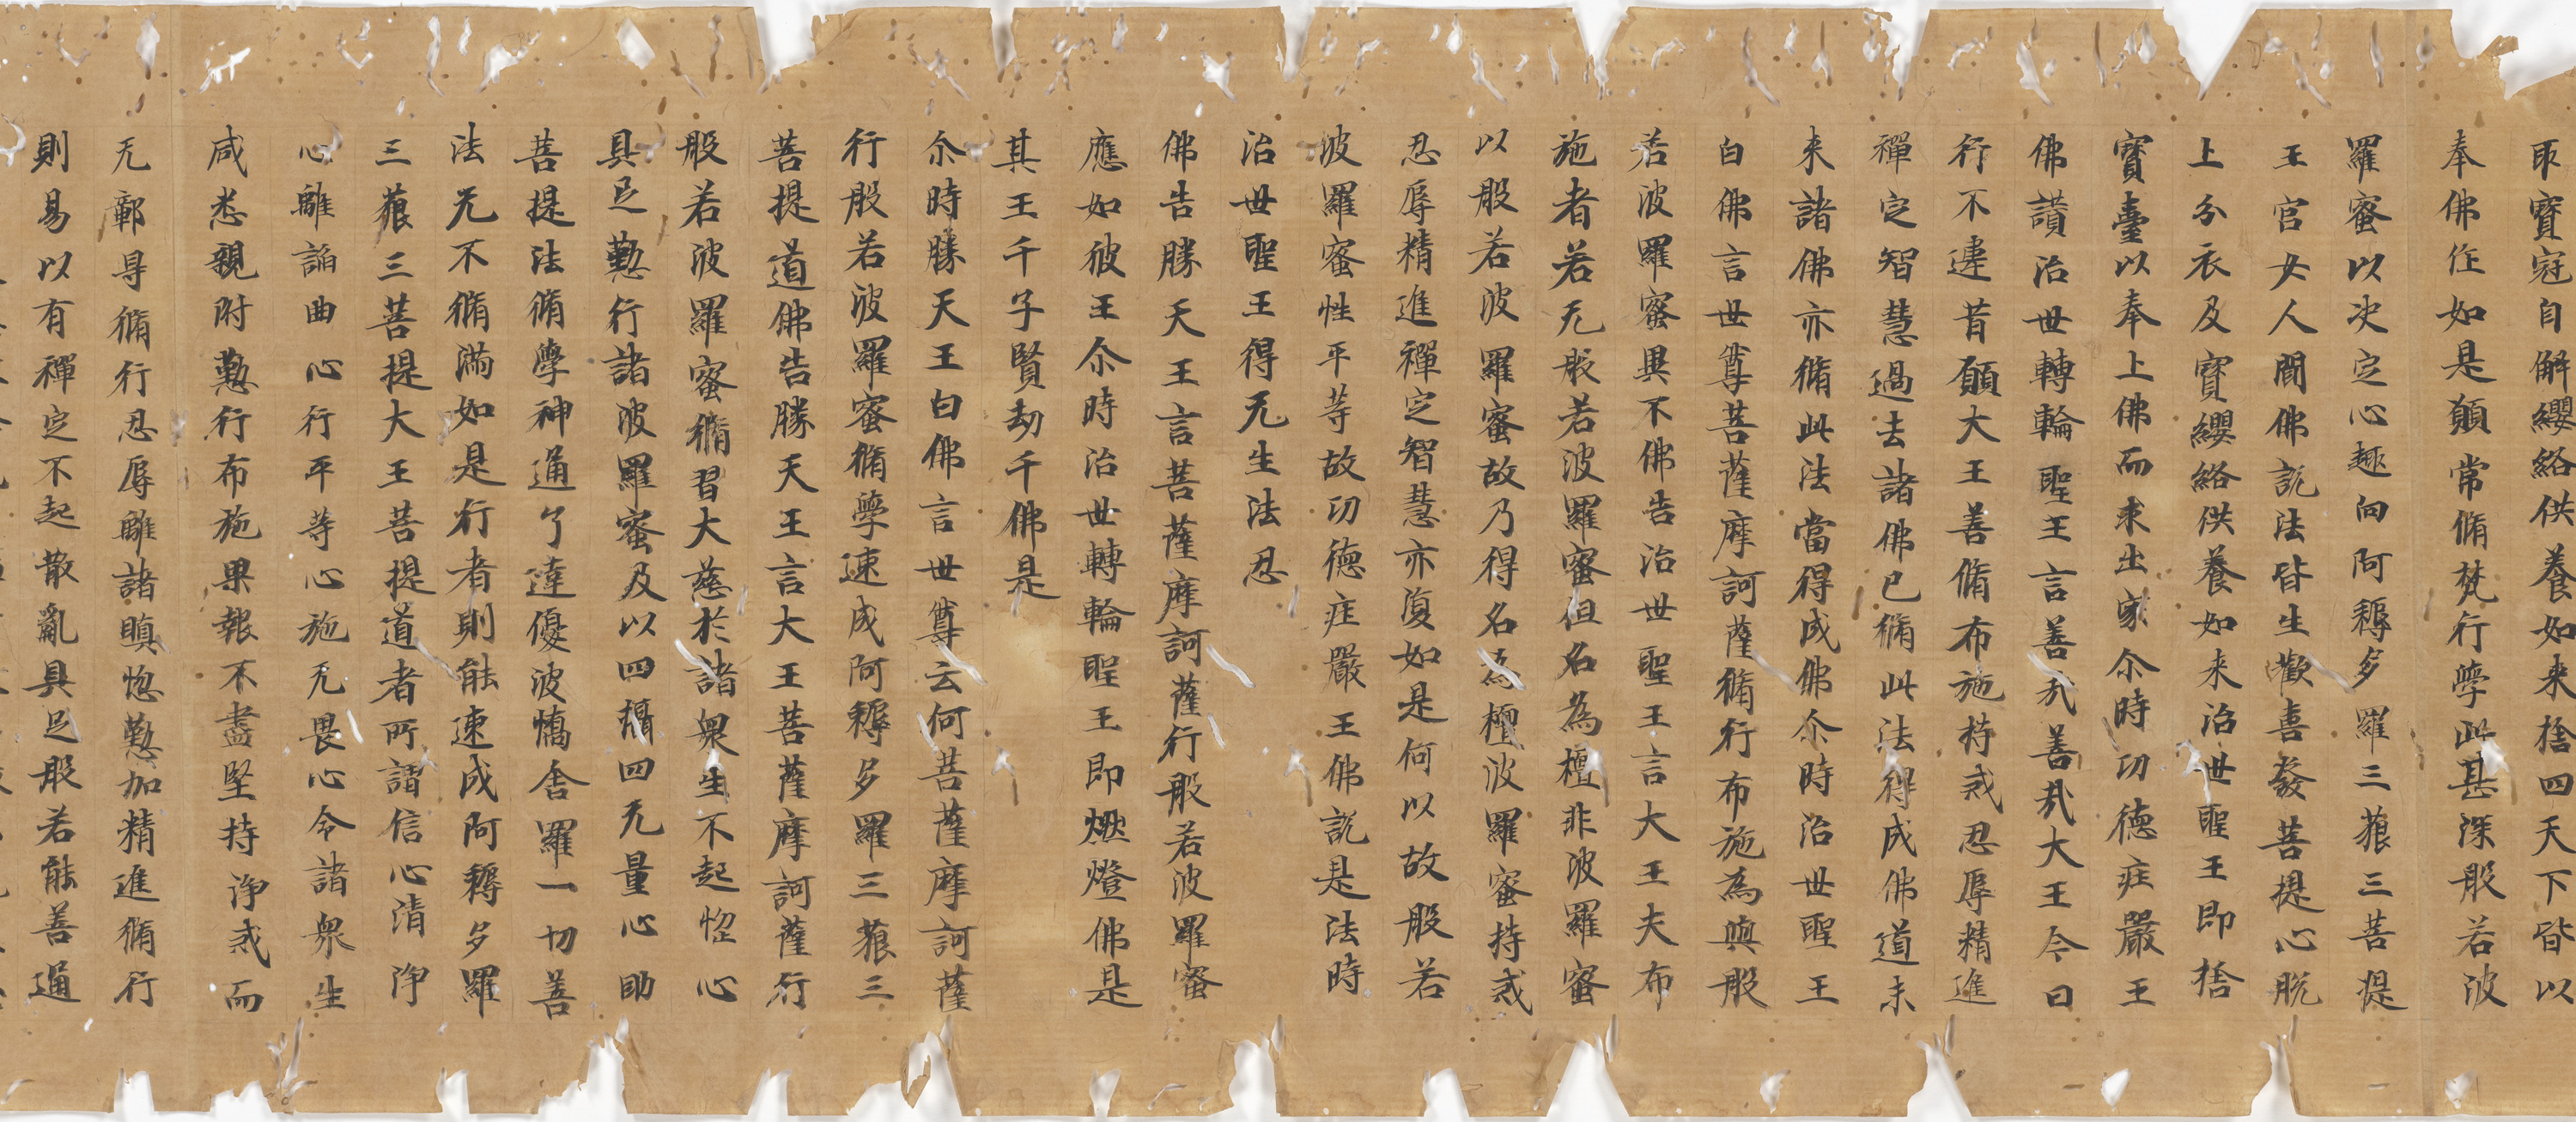 耶寶冠自解纓絡供養如来捨四天下皆以
奉佛作如是願常脩梵行學此甚深般若波
羅蜜以次定心趣向阿耨多羅三藐三菩提
王官女人聞佛說法皆生歡喜發菩提心脫
上分衣及寶纓絡供養如来治世聖王即捨
寶臺以奉上佛而求出家尒時功德庄嚴王
佛讚治世轉輪聖王言善哉善哉大王今日
行不違昔願大王善脩布施持戒忍辱精進
禪定智慧過去諸佛已脩此法得成佛道未
来諸佛亦脩此法當得成佛尒時治世聖王
白佛言世尊菩薩摩訶薩脩行布施為與般
若波羅蜜異不佛告治世聖王言大王夫布
施者若无般若波羅蜜但名為檀非波羅蜜
以般若波羅蜜故乃得名為檀波羅蜜持戒
忍辱精進禪定智慧亦復如是何以故般若
波羅蜜性平等故功德庄嚴王佛說是法時
治世聖王得无生法忍
佛告勝天王言菩薩摩訶薩行般若波羅蜜
應如彼王尒時治世轉輪聖王即燃燈佛是
其王千子賢劫千佛是
尒時勝天王白佛言世尊云何菩薩摩訶薩
行般若波羅蜜脩學速成阿耨多羅三藐三
菩提道佛告勝天王言大王菩薩摩訶薩行
般若波羅蜜脩習大慈於諸眾生不起惱心
具足懃行諸波羅蜜及以四攝四无量心助
菩提法脩學神通了達優波憍舍羅一切善
法无不脩滿如是行者則能速成阿耨多羅
三藐三菩提大王菩提道者所謂信心清浄
心離諂曲心行平等心施无畏心令諸眾生
咸悉親附懃行布施果報不盡堅持浄戒而
无鄣㝵脩行忍辱離諸瞋惱懃加精進脩行
則易以有禪定不起散亂具足般若能善通